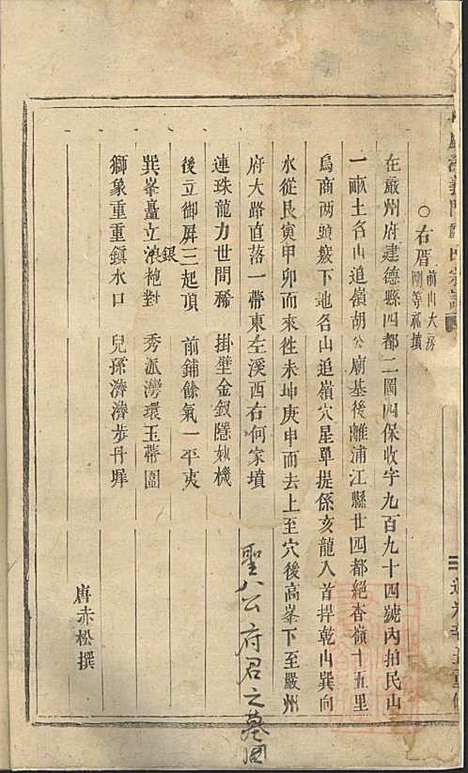 ○右厝前山大房剛等福墳
在嚴州府建德縣四都二圖四保收字九百九十四號內拍民山
一畝土名山追嶺胡公廟基後離浦江縣廿四都絕杳嶺十五里
爲商兩頭廠下地名山追嶺穴星單提係亥龍入首扦乾山巽向
水從艮寅甲卯而來徃未坤庚申而去上至穴後高峯下至嚴州
府大路直落一帶東左溪西右何家墳
聖八公府君之墓圖
連珠龍力世間稀 掛壁金釵隱妙機
後立御屏三起頂 前鋪餘氣一平夷
巽峯矗立銀袍對 秀派灣環玉帶圍
獅象重重鎮水口 兒孫濟濟步丹墀
唐赤松撰